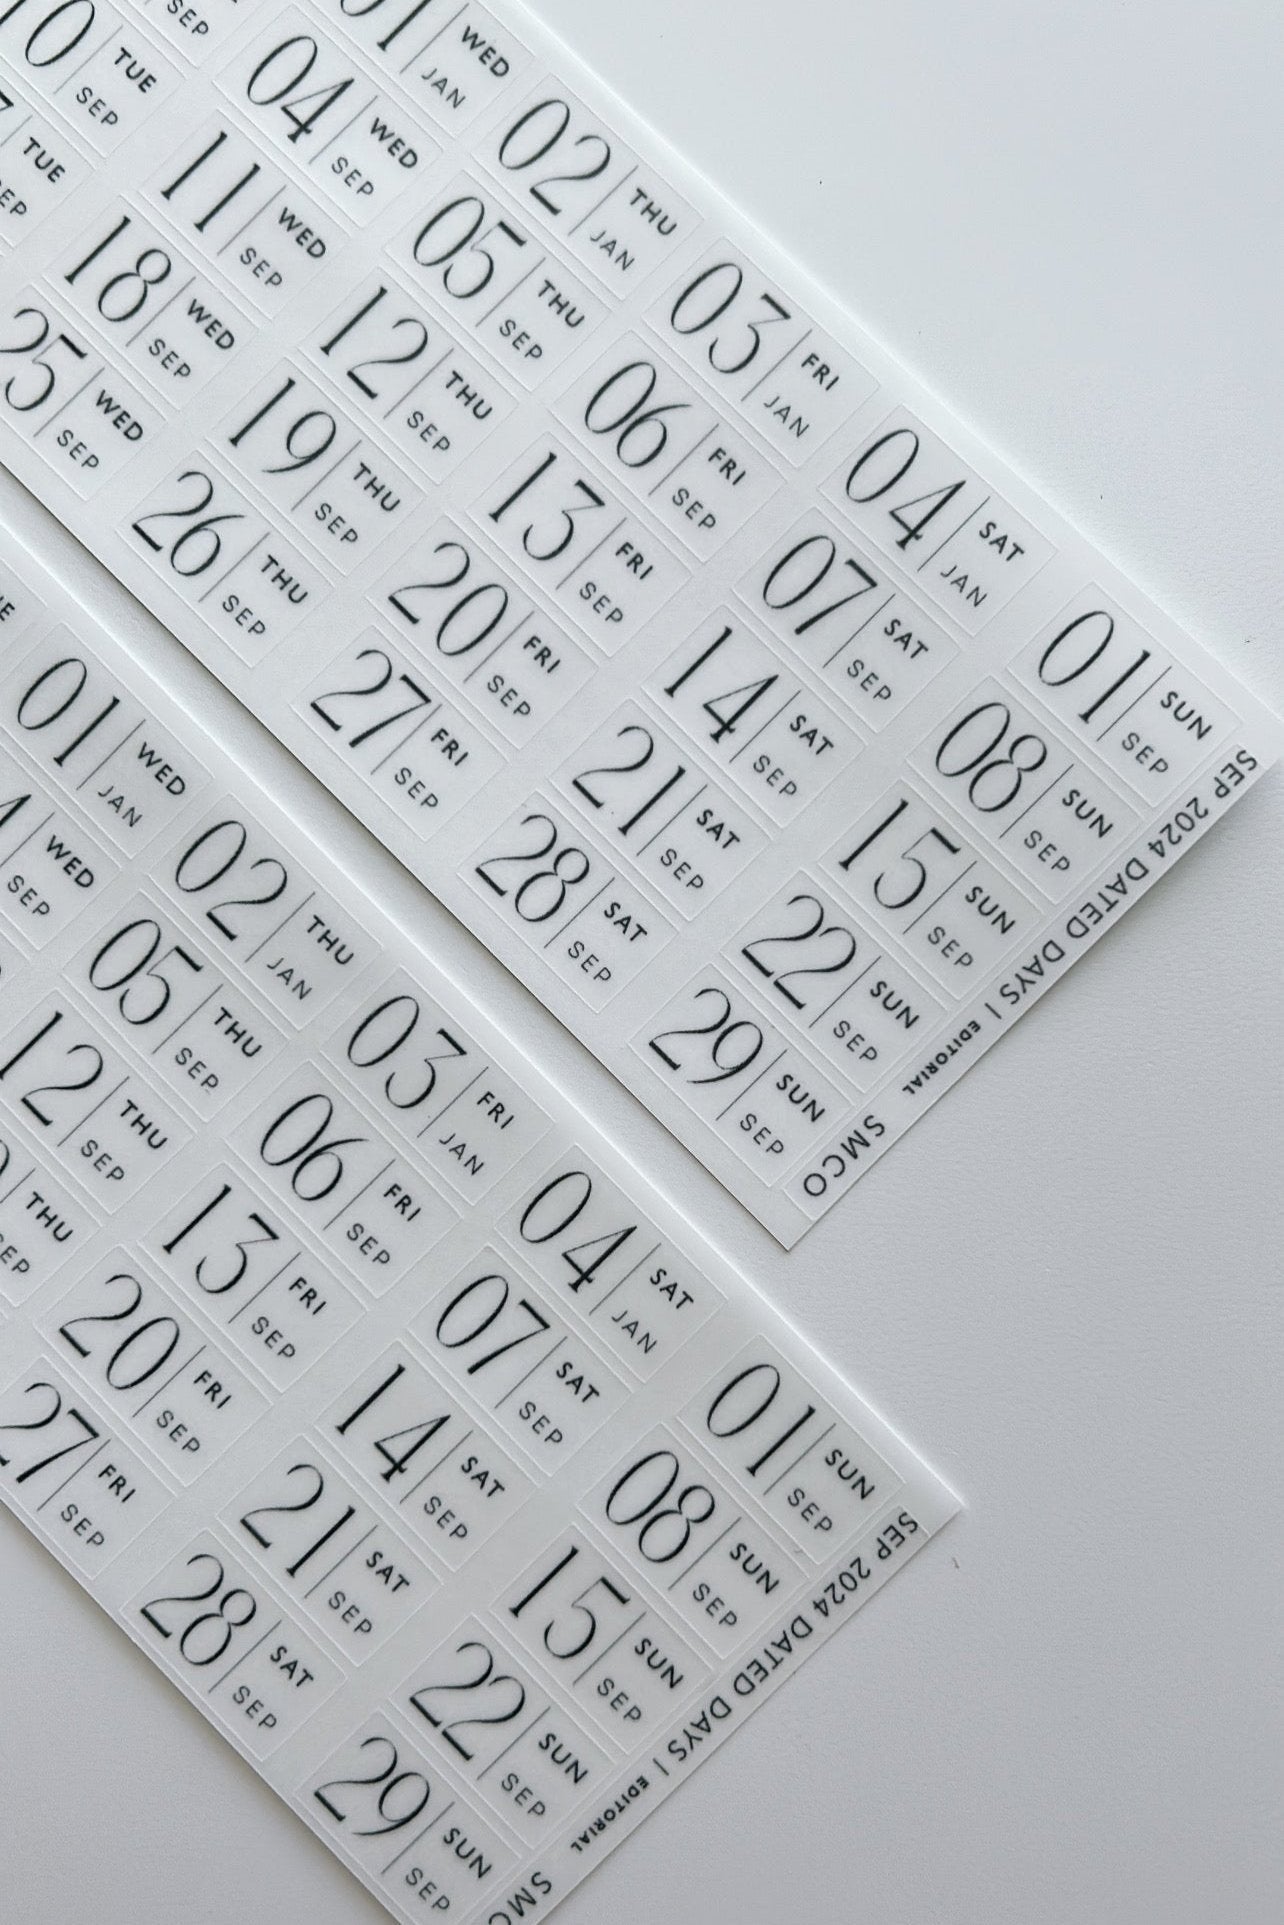 01 WED JAN 02 THU JAN 03 FRI JAN 04 SAT JAN 01 SUN SEP
SEP 04 WED SEP 05 THU SEP 06 FRI SEP 07 SAT SEP 08 SUN SEP
10 TUE SEP 11 WED SEP 12 THU SEP 13 FRI SEP 14 SAT SEP 15 SUN SEP
TUE SEP 18 WED SEP 19 THU SEP 20 FRI SEP 21 SAT SEP 22 SUN SEP
25 WED SEP 26 THU SEP 27 FRI SEP 28 SAT SEP 29 SUN SEP
SEP 2024 DATED DAYS | EDITORIAL SMCO
01 WED JAN 02 THU JAN 03 FRI JAN 04 SAT JAN 01 SUN SEP
WED SEP 05 THU SEP 06 FRI SEP 07 SAT SEP 08 SUN SEP
12 THU SEP 13 FRI SEP 14 SAT SEP 15 SUN SEP
THU SEP 20 FRI SEP 21 SAT SEP 22 SUN SEP
27 FRI SEP 28 SAT SEP 29 SUN SEP
SEP 2024 DATED DAYS | EDITORIAL SMCO